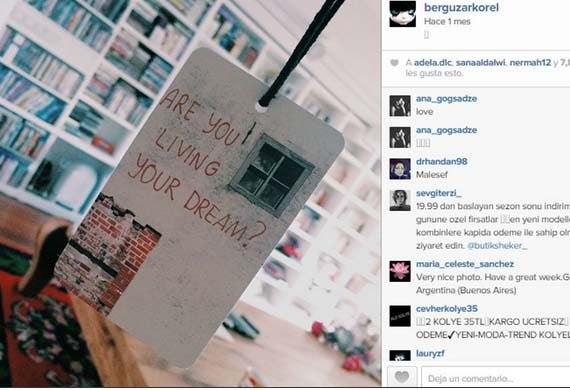 ARE YOU
LIVING
YOUR DREAM?
berguzarkorel
Hace 1 mes
A adela.dlc, sanaaldalwi, nermah12 y 7,
les gusta esto.
ana_gogsadze
love
ana_gogsadze
drhandan98
Malesef
sevgiterzi_
19.99 dan baslayan sezon sonu indirim
gunune ozel firsatlar en yeni modell
kombinlere kapida odeme ile sahip olr
ziyaret edin. @butiksheker_
maria_celeste_sanchez
Very nice photo. Have a great week.G
Argentina (Buenos Aires)
cevherkolye35
2 KOLYE 35TL KARGO UCRETSIZ
ODEME✔YENI-MODA-TREND KOLYEL
lauryzf
Deja un comentario...